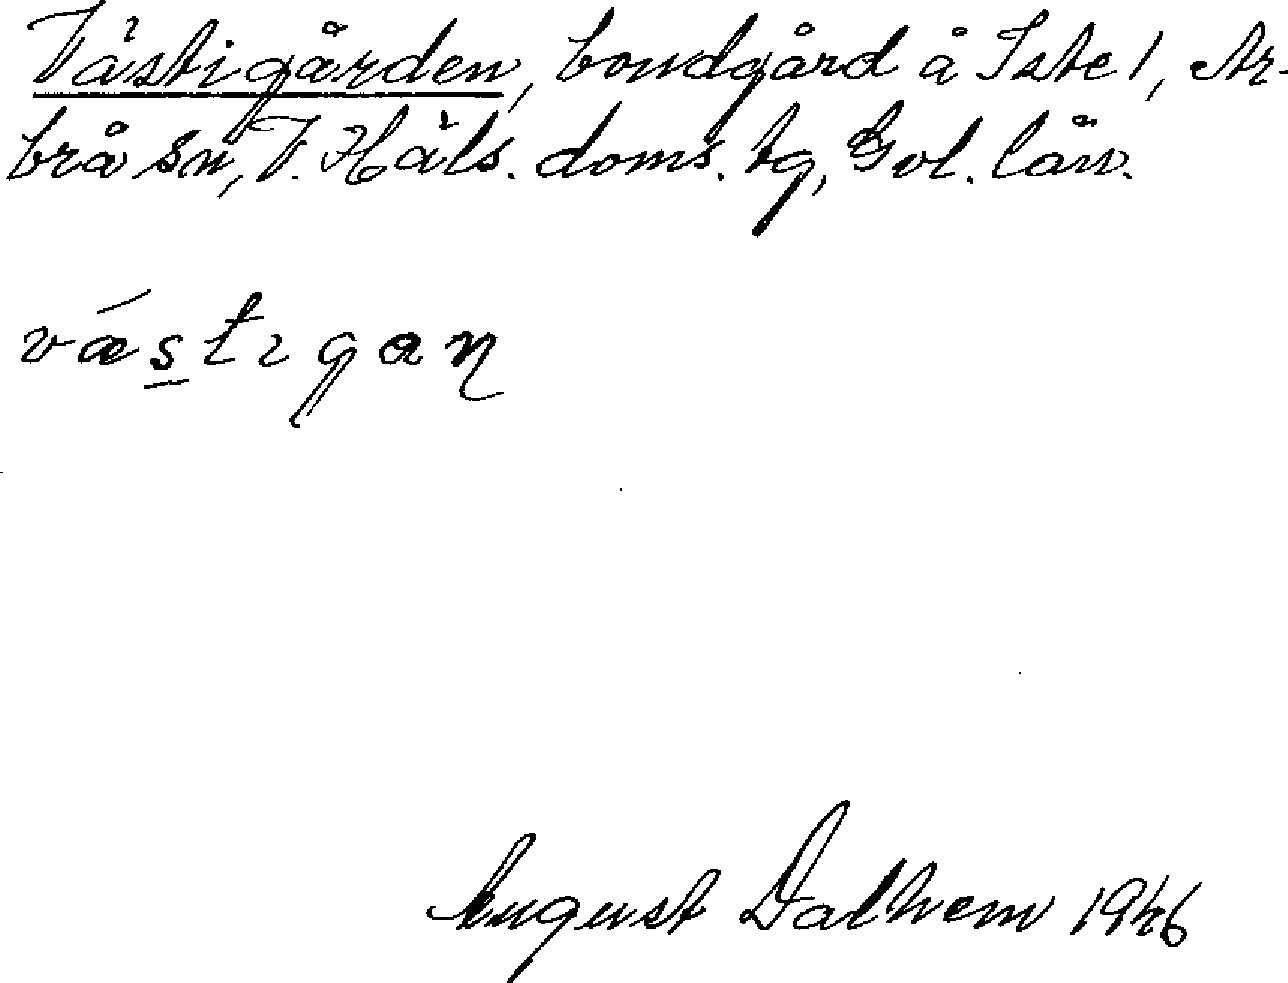 Västigården, bondgård å Iste 1, Ar-
brå sn, V. Häls. doms. tg, Gvl. län.
væstıgaɳ
August Dalhem 1946